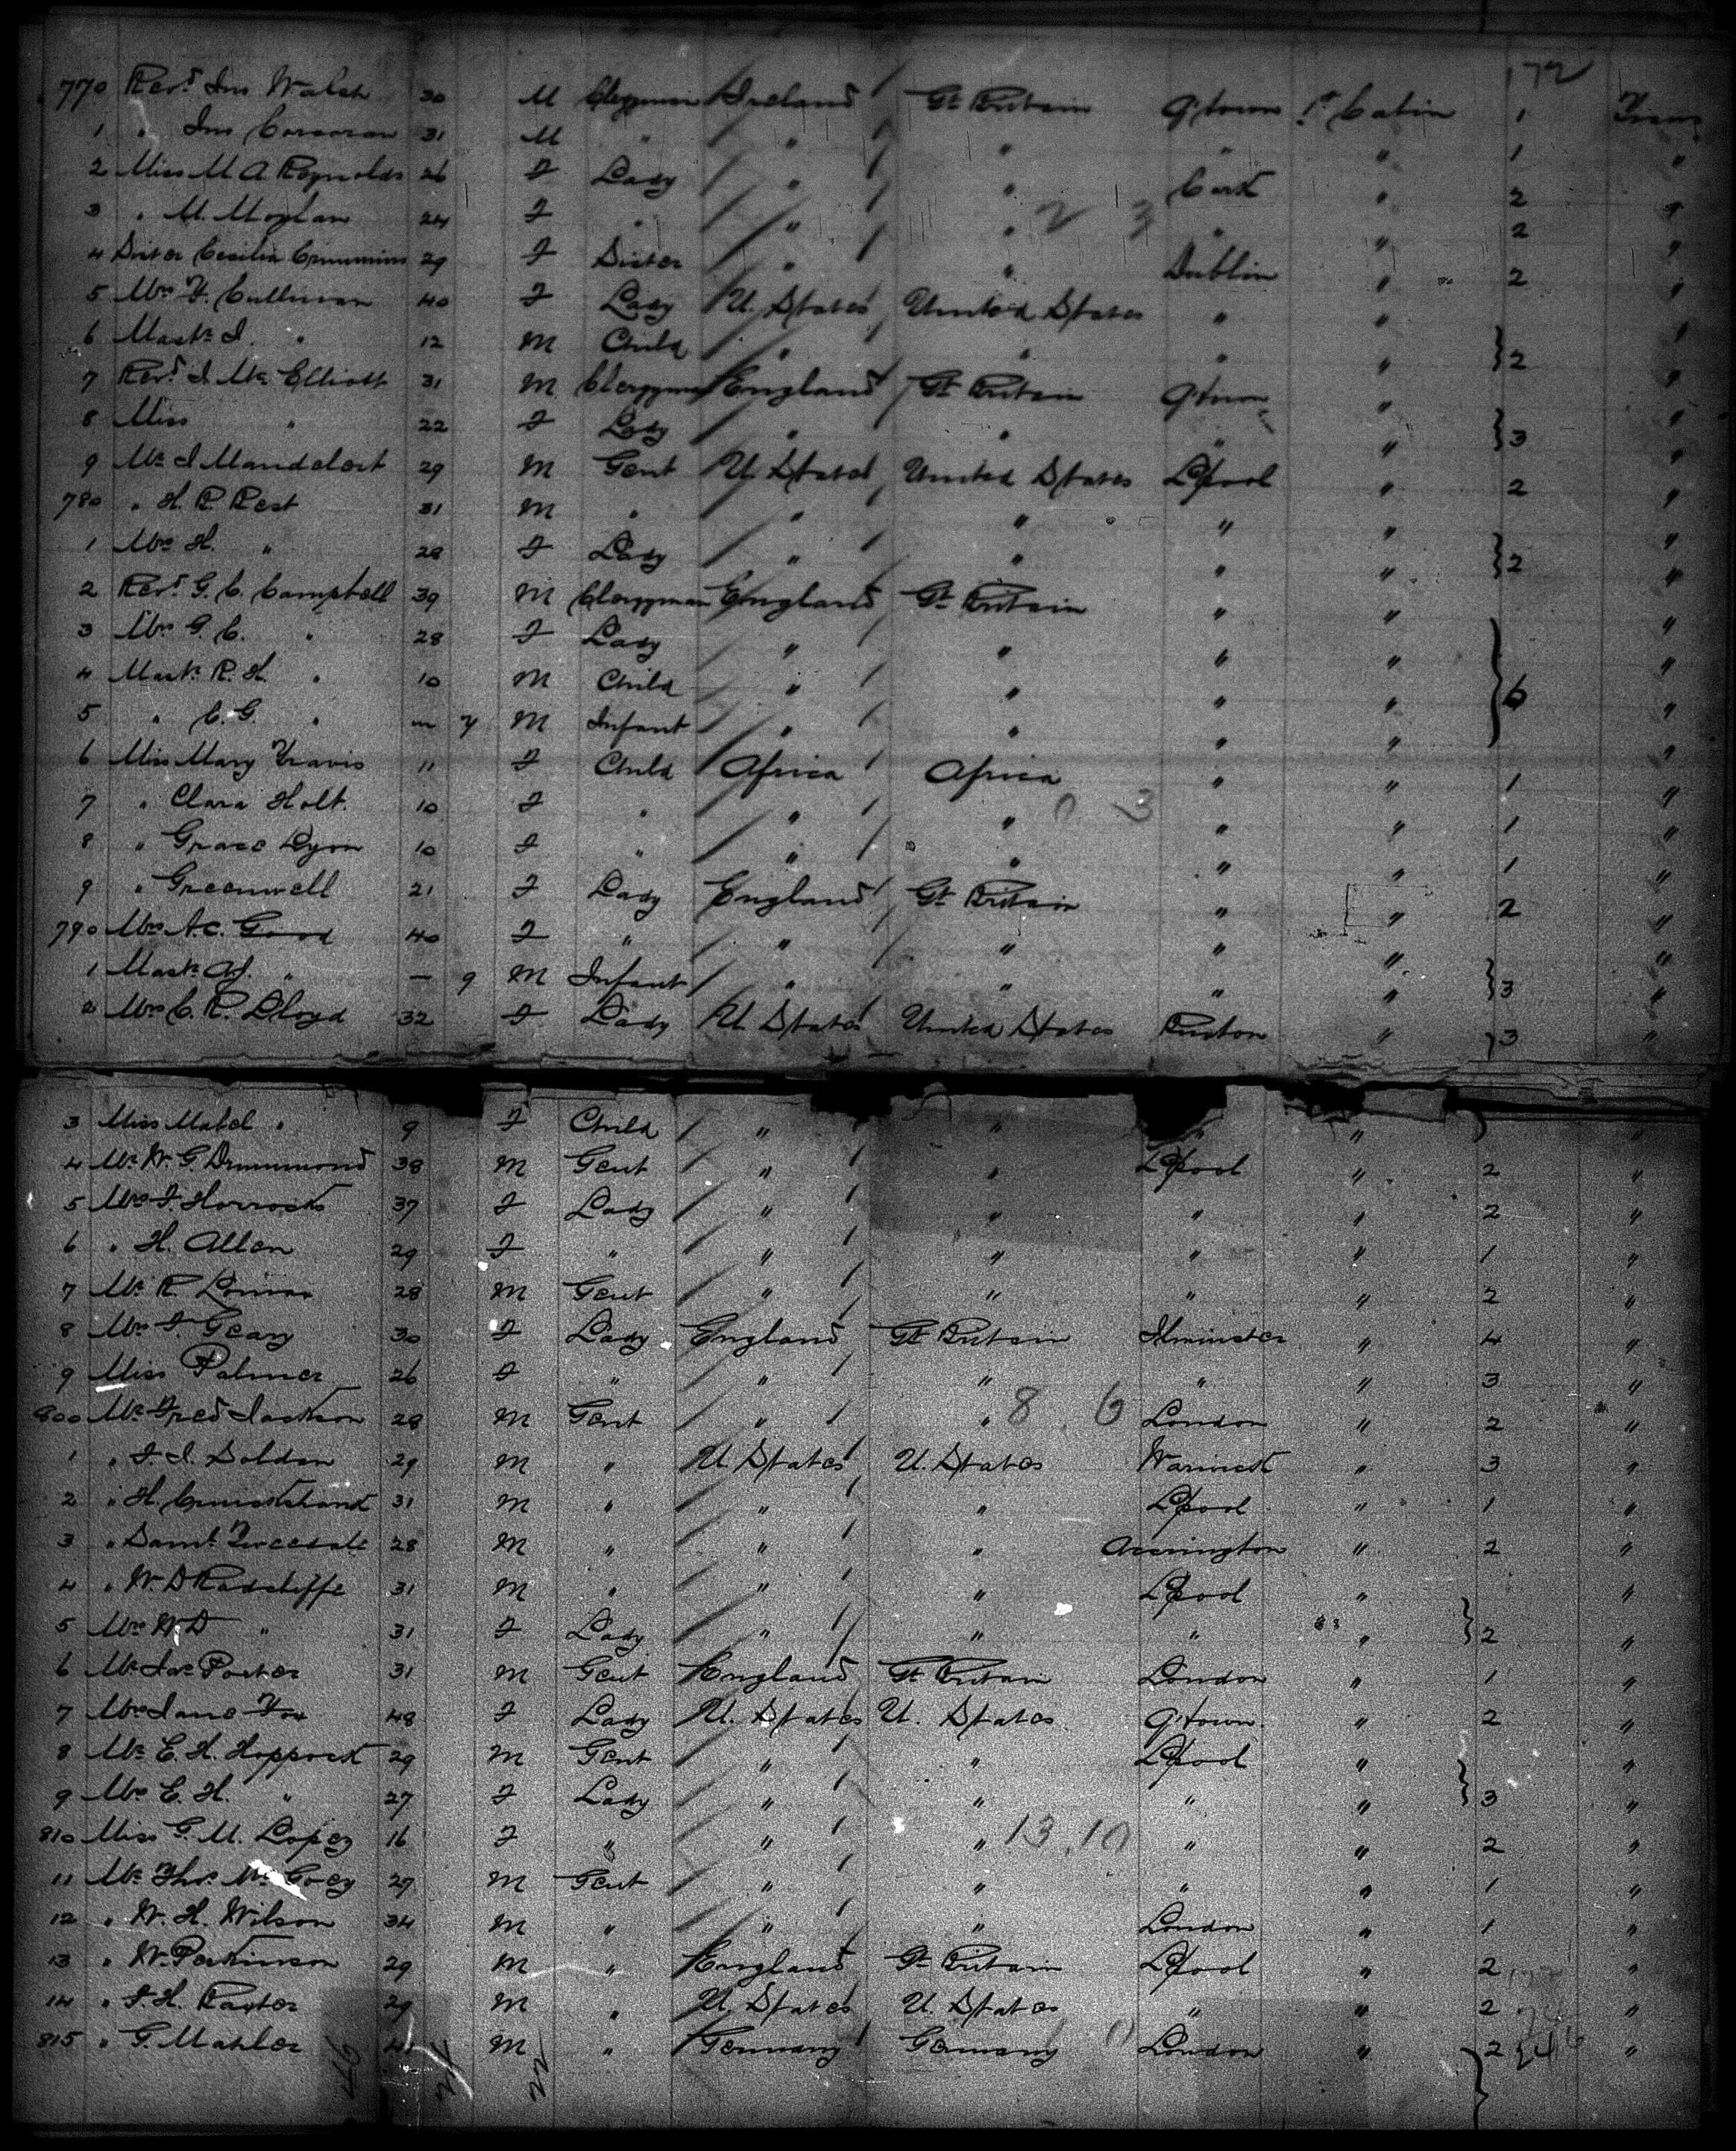 172
770 Revd Jno Walsh 30 M Clergyman Ireland Gt Britain Q'town 1st Cabin 1
1 " Jno Corcoran 31 M " " " " " 1 "
2 Miss M A Reynolds 26 F Lady " " Cork " 2 "
3 " M. Moylan 24 F " " " " " 2 "
2 3
4 Sister Cecilia Crimmins 29 F Sister " " Dublin " 2 "
5 Mrs F. Cullinan 40 F Lady U. States United States " " "
6 Mastr J. " 12 M Child " " " " 2 "
7 Revd J. Mc Elliott 31 M Clergyman England Gt Britain Q'town " "
8 Miss " 22 F Lady " " " " 3 "
9 Mr J Mandelert 29 M Gent U. States United States L'pool " 2 "
780 " H. R. Rest 31 M " " " " " "
1 Mrs H. " 28 F Lady " " " " 2 "
2 Revd G. C. Campbell 39 M Clergyman England Gt Britain " " "
3 Mrs G. C. " 28 F Lady " " " " "
4 Mastr R. H. " 10 M Child " " " " 6 "
5 " C. G. " 7 M Infant " " " " "
6 Miss Mary Travis 11 F Child Africa Africa " " 1 "
7 " Clara Holt. 10 F " " " " " 1 "
0 3
8 " Grace Lyon 10 F " " " " " 1 "
9 " Greenwell 21 F Lady England Gt Britain " " 2 "
790 Mrs A. C. Good 40 F " " " " " "
1 Mastr " — 9 M Infant " " " " 3 "
2 Mrs C. R. Lloyd 32 F Lady U States United States Preston " 3 "
3 Miss Mabel " 9 F Child " " " " "
4 Mr W. G. Drummond 38 M Gent " " L'pool " 2 "
5 Mrs F. Horrocks 37 F Lady " " " " 2 "
6 " H. Allen 29 F " " " " " 1 "
7 Mr R. Lomax 28 M Gent " " " " 2 "
8 Mrs F. Geary 30 F Lady England Gt Britain Ilminster " 4 "
9 Miss Palmer 26 F " " " " " 3 "
800 Mr Fred Jackson 28 M Gent " " London " 2 "
8 6
1 " F. J. Soldan 29 M " U. States U. States Warwick " 3 "
2 " H. Cruickshank 31 M " " " L'pool " 1 "
3 " Saml Tweedale 28 M " " " Accrington " 2 "
4 " W. D Radcliffe 31 M " " " L'pool "
5 Mrs W. D " 31 F Lady " " " " 2 "
6 Mr Jas Porter 31 M Gent England Gt Britain London " 1 "
7 Mrs Jane Fox 48 F Lady U. States U. States Q'town. " 2 "
8 Mr E. H. Hoppock 29 M Gent " " L'pool " "
9 Mrs E. H. " 27 F Lady " " " " 3 "
810 Miss G. M. Lopez 16 F " " " " " 2 "
13 10
11 Mr Thos 29 M Gent " " " " 1 "
12 " W. H. Wilson 34 M " " " London " 1 "
13 " W. Parkinson 29 M " England Gt Britain L'pool " 2 "
14 " F. H. Raxter 29 M " U. States U. States " " 2 "
815 " G. Mahler 41 M " Germany Germany London " 2 "
22